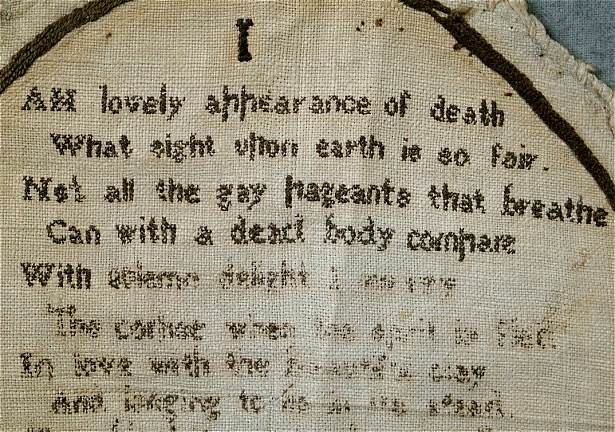 I
AH lovely appearance of death
What sight upon earth is so fair.
Not all the gay pageants that breathe
Can with a dead body compare
With solemn delight I survey
The corpse when the spirit is fled.
In love with the beautiful clay
And longing to lie in its stead.